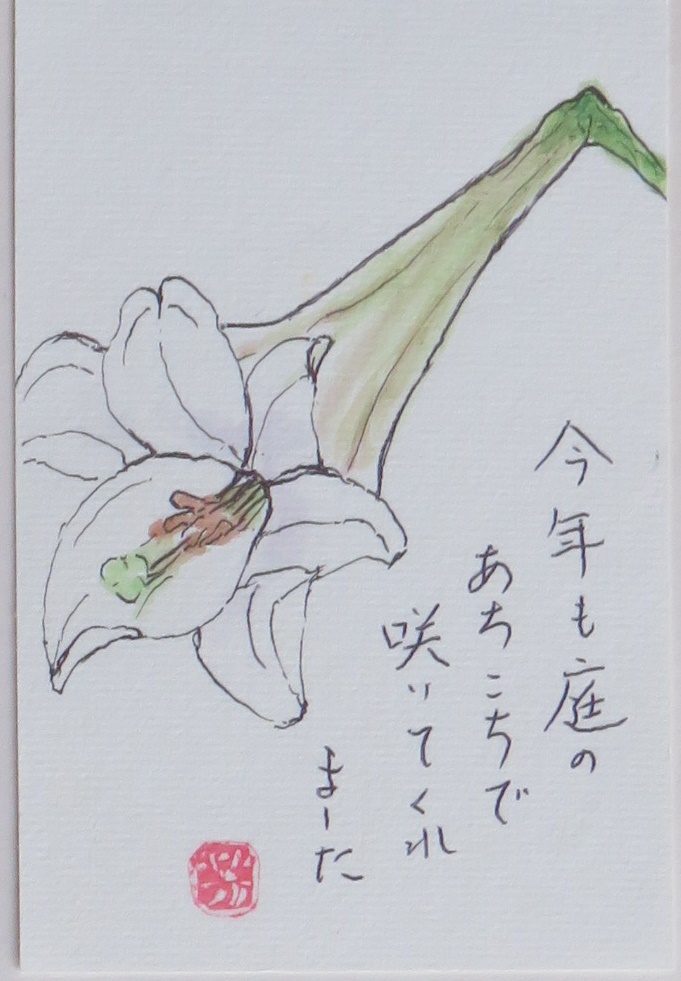 今年も庭の
あちこちで
咲いてくれ
ました